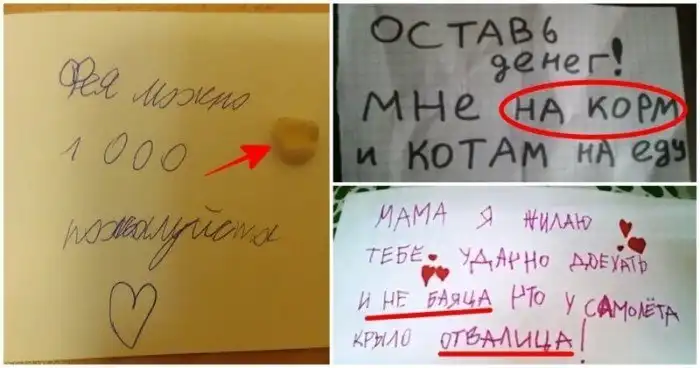 Фея можно
1000
пожалуйста
ОСТАВЬ
денег!
МНе НА КОРМ
и КОТАМ НА еду
МАМА Я ЖИЛАЮ
ТЕБЕ УДАЧНО ДОЕХАТЬ
И НЕ БАЯЦА ЧТО У САМОЛЁТА
КРЫЛО ОТВАЛИЦА!